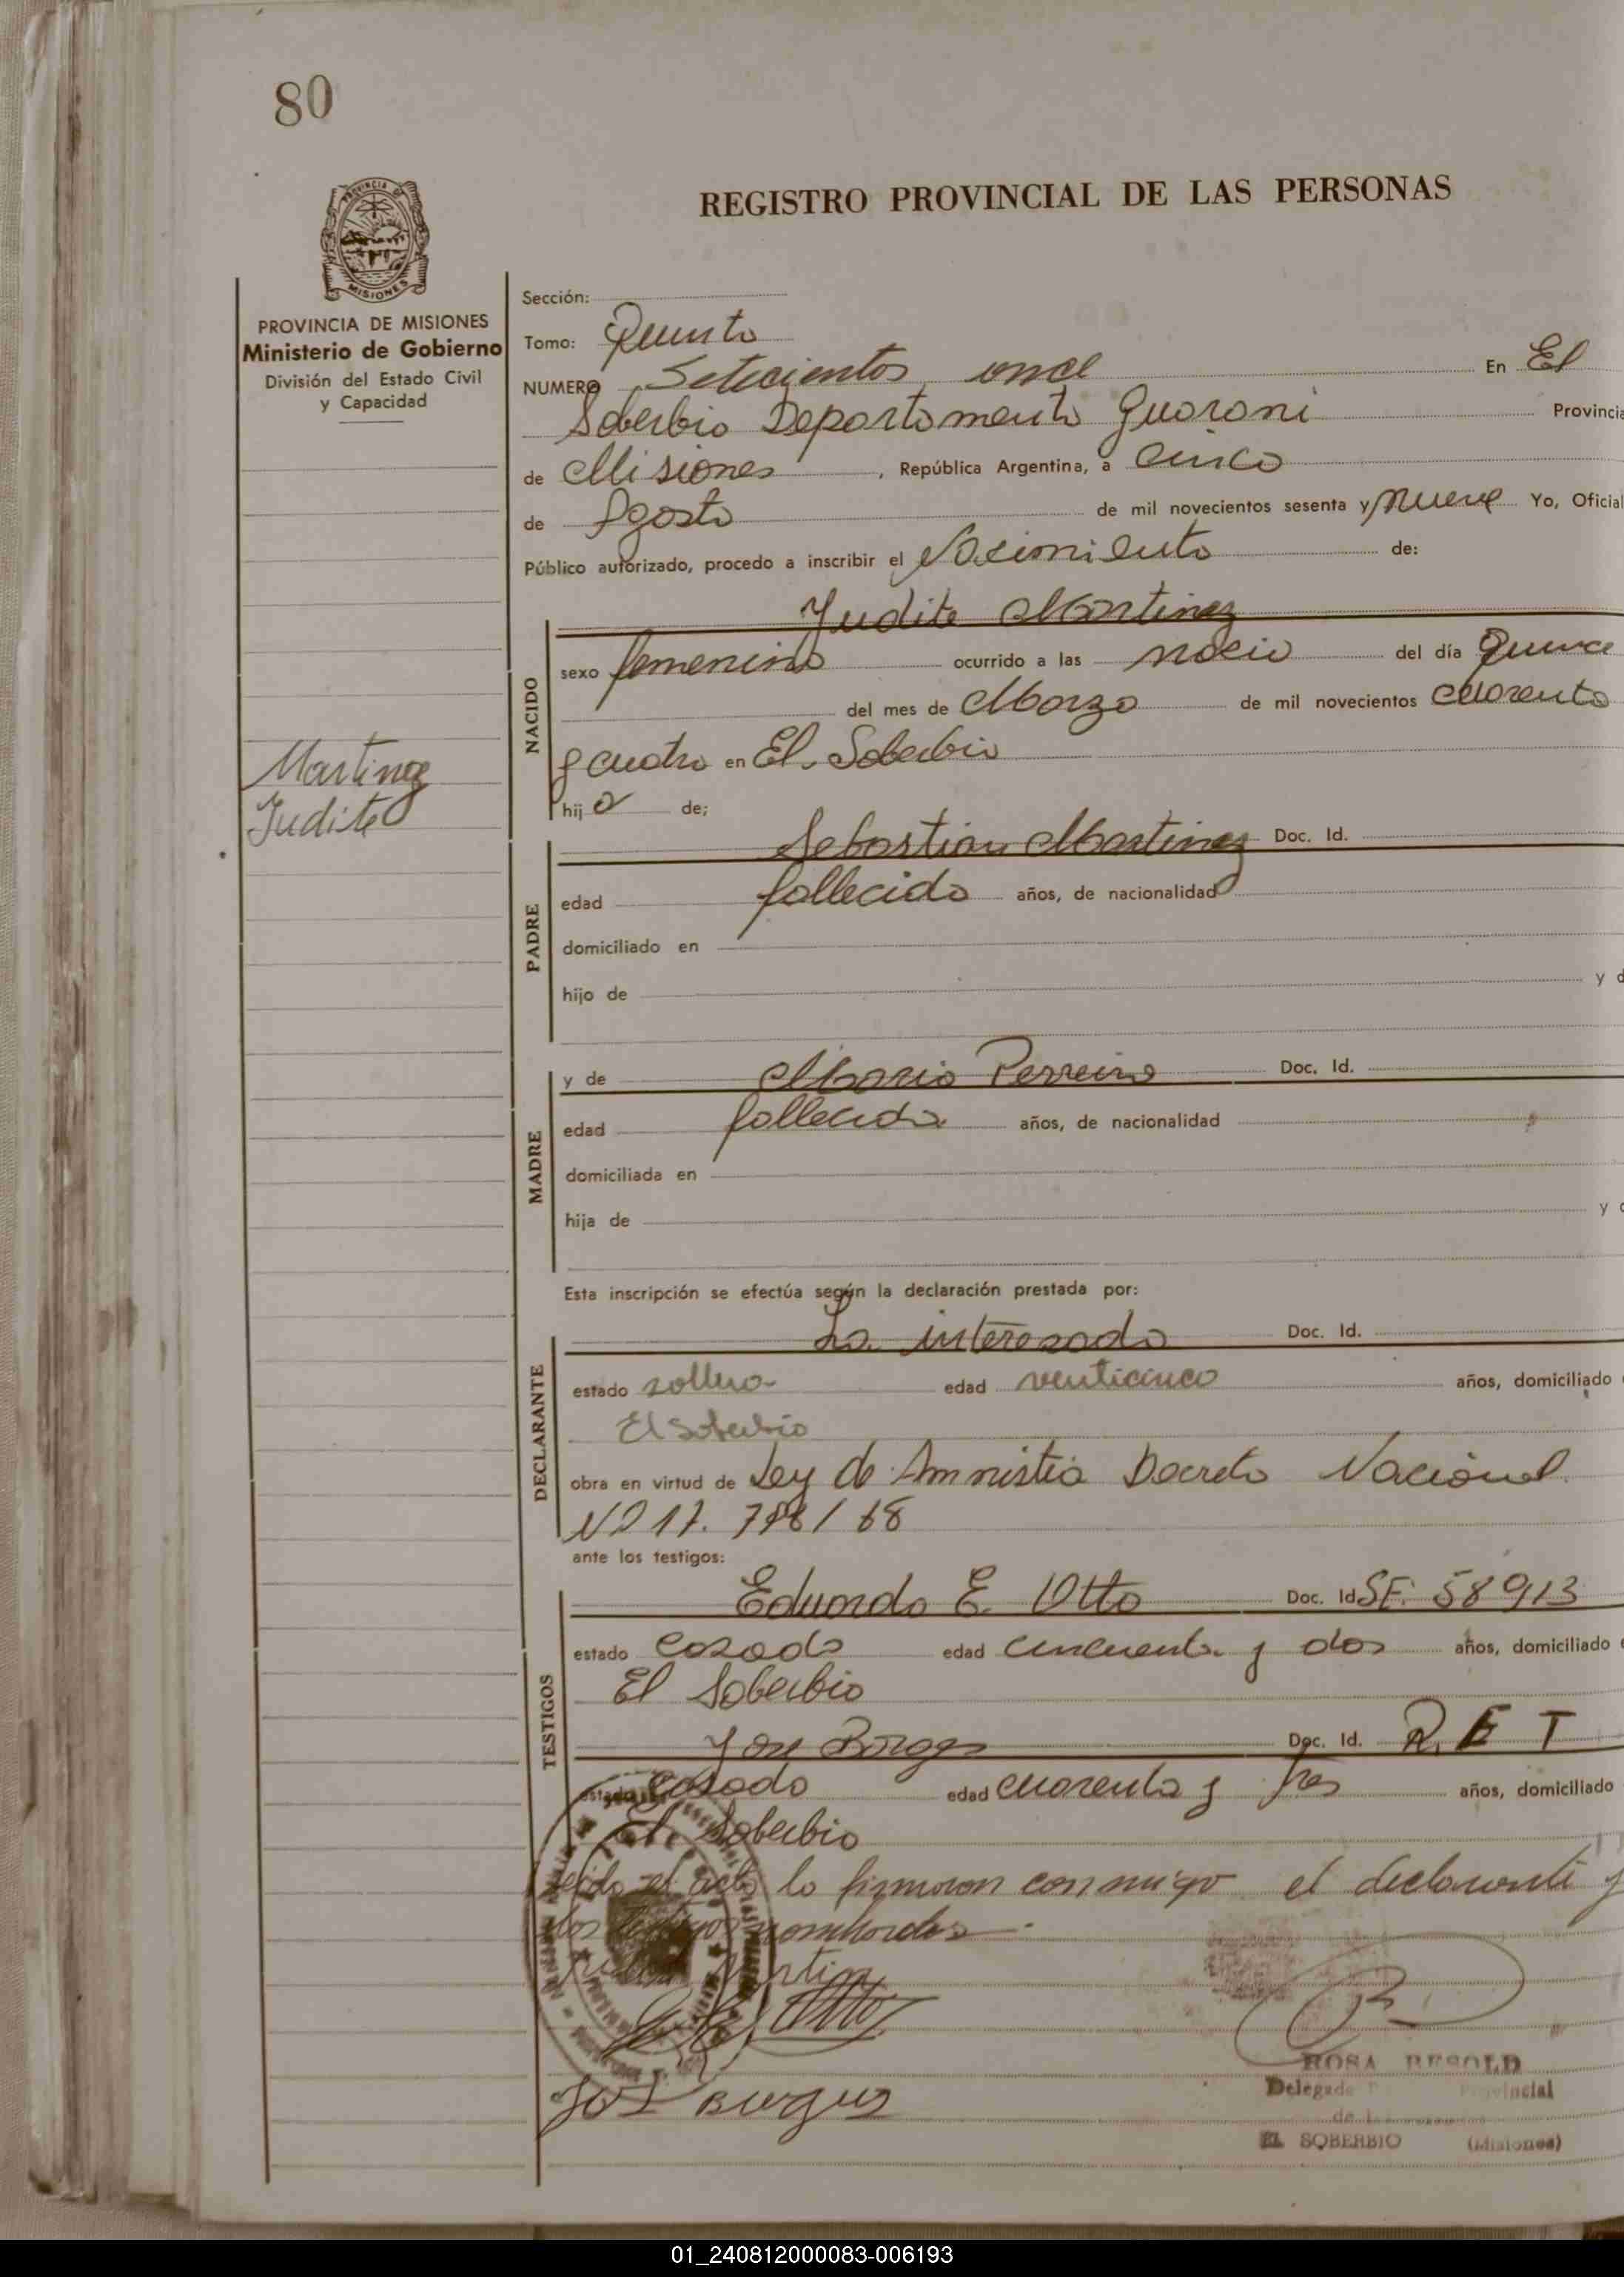 80
PROVINCIA DE
MISIONES
REGISTRO PROVINCIAL DE LAS PERSONAS
PROVINCIA DE MISIONES
Ministerio de Gobierno
División del Estado Civil
y Capacidad
Martinez
Judite
Sección:
Tomo: Quinto
NUMERO Setecientos once En El
Soberbio Departamento Guarani Provincia
de Misiones, República Argentina, a cinco
de Agosto de mil novecientos sesenta y nueve Yo, Oficial
Público autorizado, procedo a inscribir el Nacimiento de:
NACIDO
Judite Martinez
sexo femenino ocurrido a las del día quince
del mes de Marzo de mil novecientos cuarenta
y cuatro en El Soberbio
hij a de;
PADRE
Sebastian Martinez Doc. Id.
edad fallecido años, de nacionalidad
domiciliado en
hijo de y d
MADRE
y de Maria Perreira Doc. Id.
edad fallecida años, de nacionalidad
domiciliada en
hija de y d
Esta inscripción se efectúa según la declaración prestada por:
DECLARANTE
La interesada Doc. Id.
estado soltera edad venticinco años, domiciliado
El Soberbio
obra en virtud de Ley de Amnistia Decreto Nacional
Nº 17. /68
ante los testigos:
TESTIGOS
Eduardo E. Otto Doc. Id SF. 58913
estado casado edad cincuenta y dos años, domiciliado
El Soberbio
Jose Borges Doc. Id. R. E T
estado casado edad cuarenta y tres años, domiciliado
El Soberbio
leido el acta lo firmaron conmigo el declarante y
los testigos nombrados.
ROSA RESOLD
Delegada Provincial
EL SOBERBIO (Misiones)
01_240812000083-006193